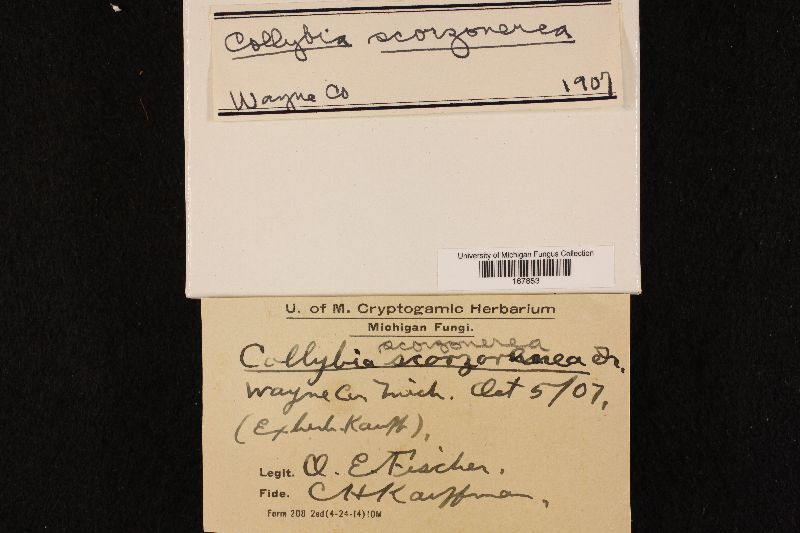 Collybia scorzonerea
Wayne Co 1907
University of Michigan Fungus Collection
167853
U. of M. Cryptogamic Herbarium
Michigan Fungi.
scorzonerea
Collybia Fr.
Wayne Co. Mich. Oct 5/07,
(Ex herb. Kauff),
Legit. O. E. Fischer.
Fide. CH Kauffman,
Form 208 2ed(4-24-14)10M